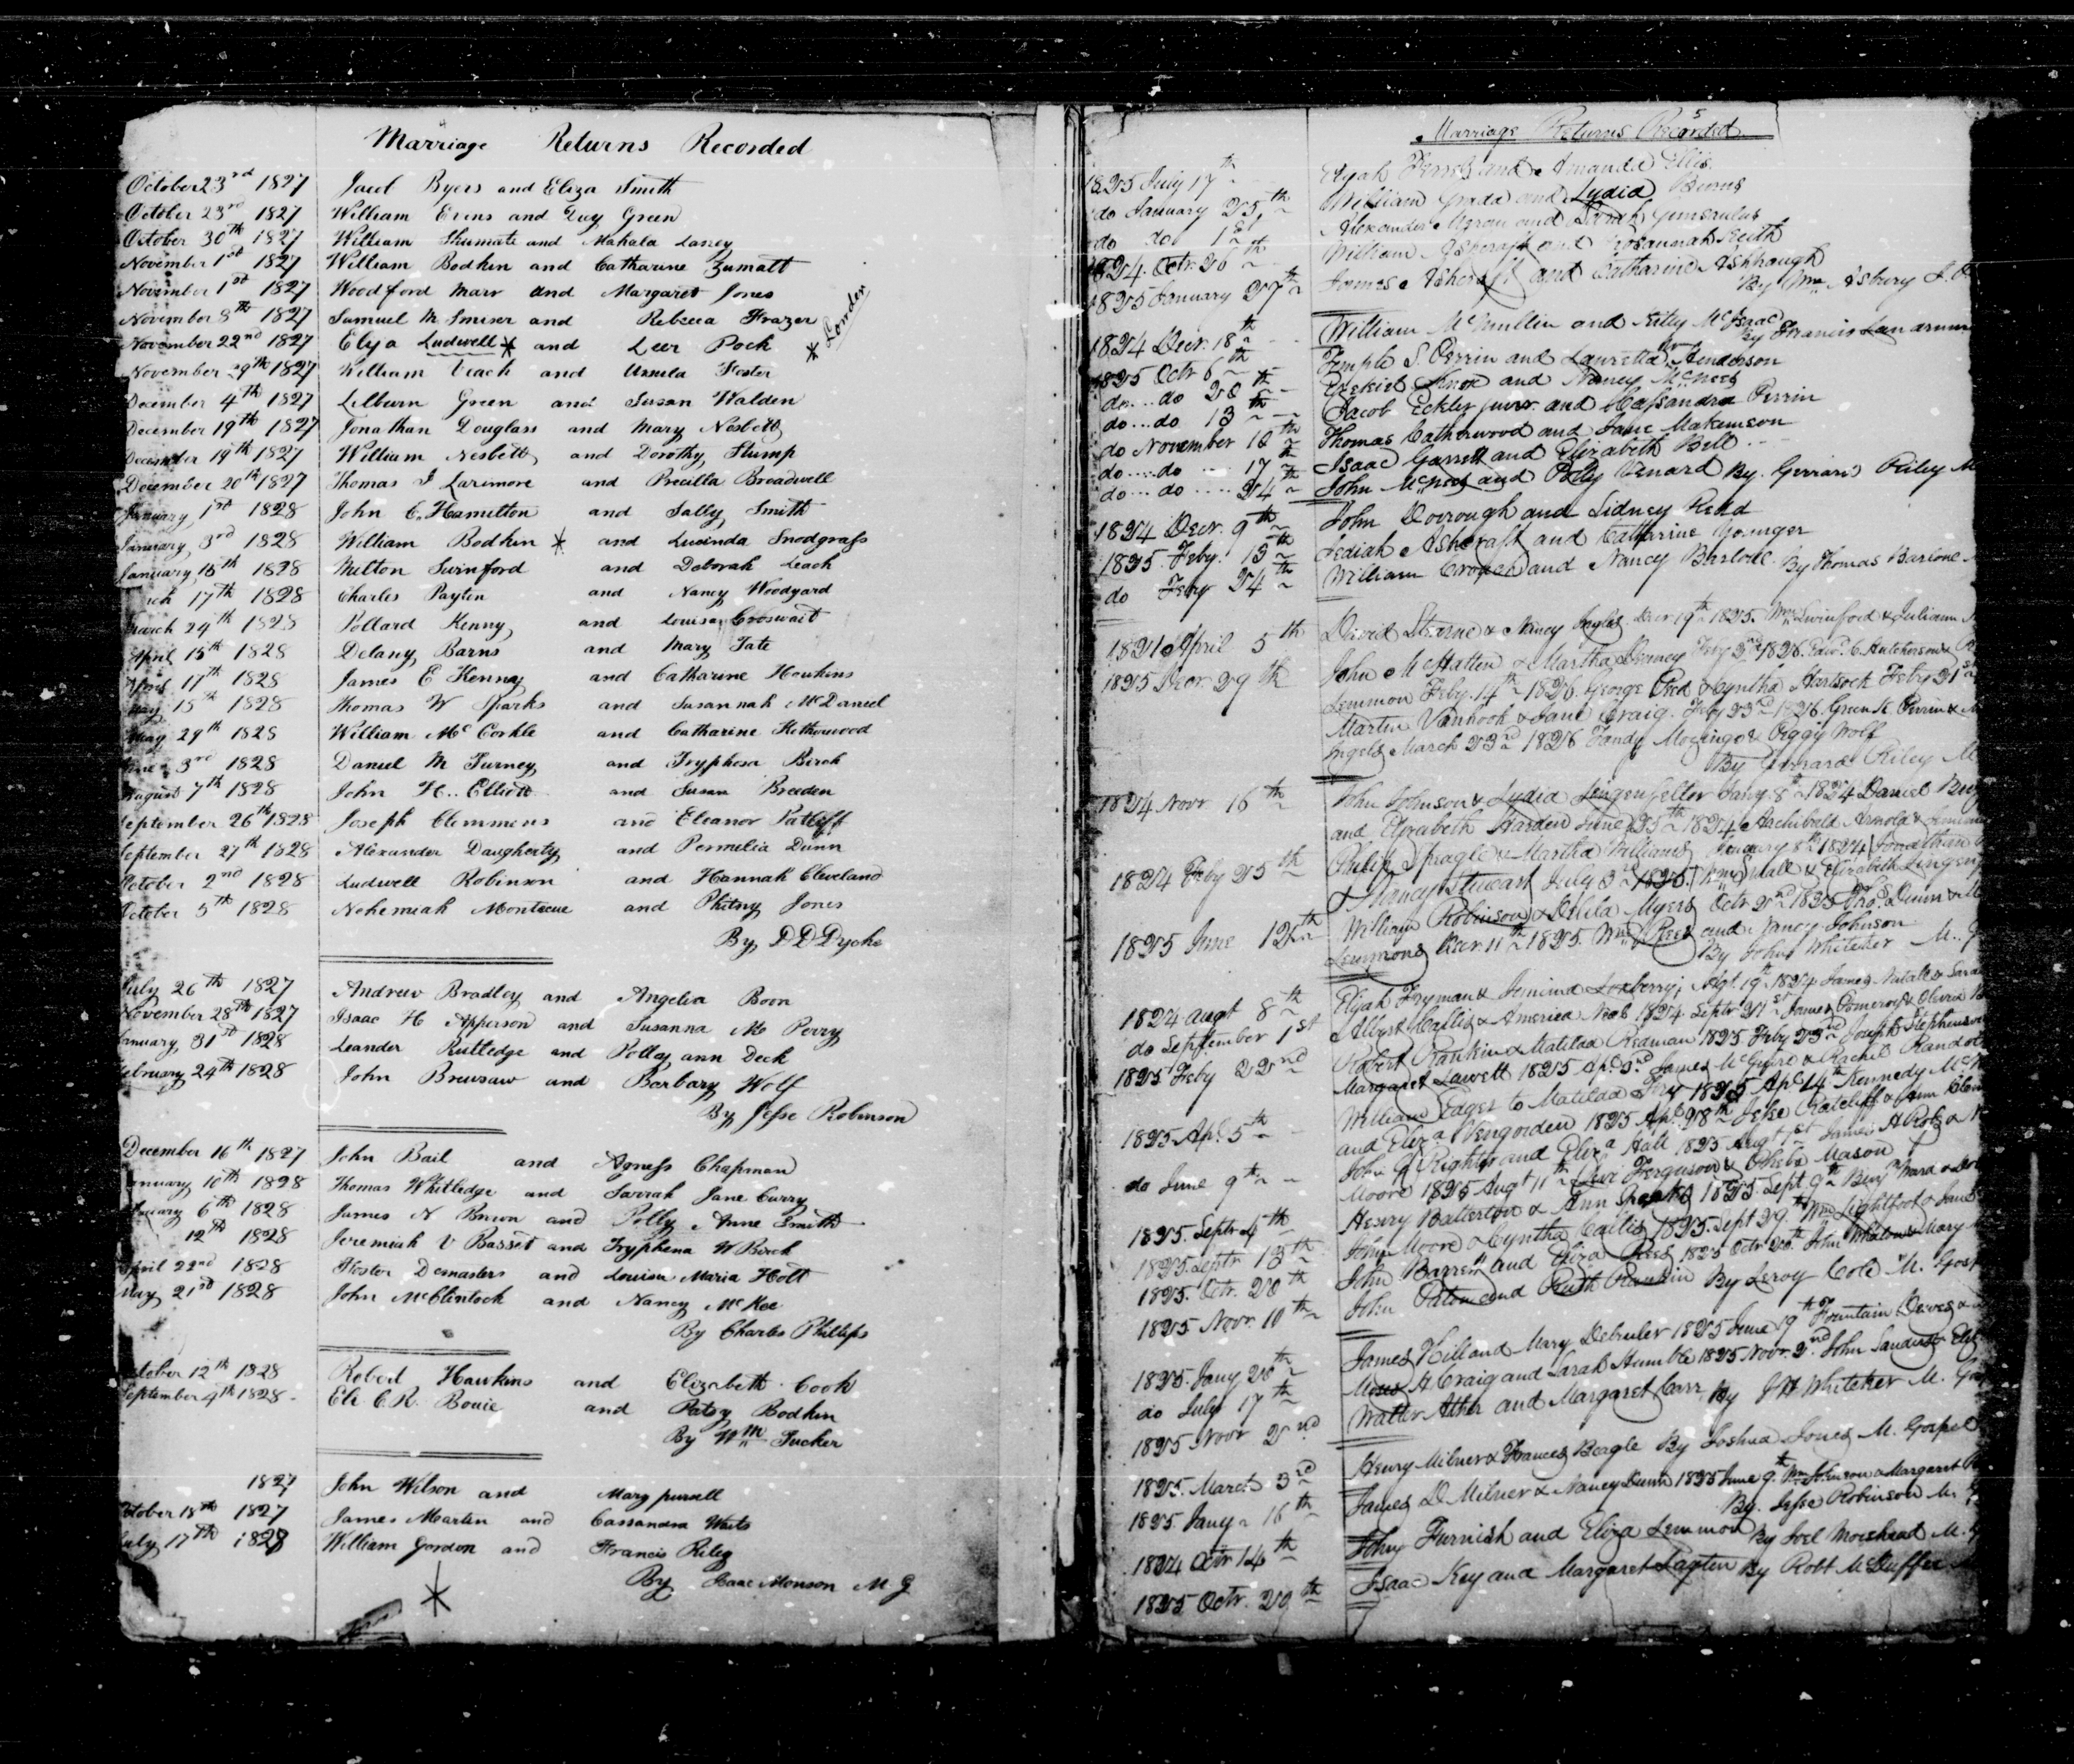 Marriage Returns Recorded
October 23rd 1827 Jacob Byers and Eliza Smith
October 23rd 1827 William Evins and Green
October 30th 1827 William Shumate and Mahala Laney
November 1st 1827 William Bodkin and Catharine Zumatt
November 1st 1827 Woodford Marr and Margaret Jones
November 8th 1827 Samuel M Smiser and Rebecca Frazer
November 22nd 1827 Elija Ludwell * and Leer Pock * Londen
November 29th 1827 William Veach and Ursula Foster
December 4th 1827 Lilburn Green and Susan Walden
December 19th 1827 Jonathan Douglass and Mary Nesbett
December 19th 1827 William Nesbett and Dorothy Stump
December 20th 1827 Thomas J Larimore and Precilla Broadwell
January 1st 1828 John C. Hamelton and Sally Smith
January 3rd 1828 William Bodkin * and Lucinda Snodgrass
January 15th 1828 Milton Swinford and Deborah Leach
17th 1828 Charles Payten and Nancy Woodyard
March 24th 1828 Pollard Kenny and Louisa Croswait
April 15th 1828 Delany Barns and Mary Tate
April 17th 1828 James E Kenney and Catharine Hawkins
May 15th 1828 Thomas W Sparks and Susannah McDaniel
May 29th 1828 William McCorkle and Catharine Ketherwood
3rd 1828 Daniel M Turney and Tryphosa Birch
August 7th 1828 John H. Elliott and Susan Breeden
September 26th 1828 Joseph Clemmens and Eleanor Ratliff
September 27th 1828 Alexander Daugherty and Permelia Dunn
October 2nd 1828 Ludwell Robinson and Hannah Cleveland
October 5th 1828 Nehemiah Montecue and Phitny Jones
By D D Dyche
July 26th 1827 Andrew Bradley and Angelia Boon
November 28th 1827 Isaac H Apperson and Susanna Mc Povry
January 31st 1828 Leander Rutledge and Polley ann Deck
February 24th 1828 John Brewsaw and Barbary Wolf
By Jesse Robinson
December 16th 1827 John Bail and Agness Chapman
January 10th 1828 Thomas Whitledge and Sarrah Jane Curry
6th 1828 James N Brown and Polly Anne Smith
12th 1828 Jeremiah V Basset and Tryphena W Birch
April 22nd 1828 Foster Demasters and Louisa Maria Holt
May 21st 1828 John McClintock and Nancy McKee
By Charles Phillips
October 12th 1828 Robert Hawkins and Elizabeth Cook
September 4th 1828 Eli C.R. Bouie and Patsy Bodkin
By Wm Tucker
1827 John Wilson and Mary pursell
October 18th 1827 James Martin and Cassandra Waits
July 17th 1828 William Gordon and Francis Riley
By Isaac Monson M G
*
5
Marriage Returns Recorded
1825 July 17th Elijah and Amanda Ellis
do January 25th William and Lydia Burns
do do 1st Alexander and Sarah
1824 Octr. 26th William Ashcraft and Rosannah Keith
1825 January 27th James Ashcraft and Catharine Ashbaugh
By Wm Asbury
1824 Decr. 18th William McMullin and Kitty McIsaac
By Francis
1825 Octr 6th Temple S. Perrin and Lauretta Henderson
do do 20th Ezekiel and Nancy McNees
do do 13th Jacob Eckler junr. and Cassandra Perrin
do November 10th Thomas Catherwood and Jane Makemson
do do 17th Isaac Garrett and Elizabeth Bell
do do 24th John McNees and Polly Venard By Gerrard Riley M
1824 Decr. 9th John Dorrough and Sidney Read
1825 Feby. 15th Jediah Ashcraft and Catharine Younger
do Feby 24th William and Nancy Barlow By Thomas Barlow
1821 April 5th David Stearne & Nancy Ingles Decr 19th 1825. Wm Swinford & Juliann
1825 Decr. 29th John McHatten & Martha Feby 2nd 1826. Edwd. C. Hutcherson &
Lemmon Feby. 14th 1826. George Reed & Cyntha Hartsock Feby 21st
Martin Vanhook & Jane Craig. Feby 23rd 1826. Green R. Perrin &
Ingels March 23rd 1826 Tandy & Peggy Wolf
By Gerrard Riley M
1824 Novr 16th John Johnson & Lydia Lingenfelter Jany. 8th 1824 Daniel
and Elizabeth Harden June 25th 1824 Archibald Arnold &
1824 Feby 25th Philip Spragle & Martha Williams January 8th 1824 Jonathan
& Nancy Stewart July 3rd 1825. Wm Small & Elizabeth
1825 June 12th William Robinson & Delila Myers Octr. 2nd 1825 Thos. Dunn &
Lemmons Decr. 11th 1825. Wm Rees and Nancy Johnson
By John Whiteker M. G
1824 augt 8th Elijah Fryman & Jemima Sept. 19th 1824 James &
do September 1st Albert Callis & America 1824 Septr 21st James Pomeroy & Olivia
1825 Feby 22nd Robert Rankin & Matilda Redman 1825 Feby 23rd Joseph Stephenson
Margaret Lawell 1825 Apl. 3rd James McGuire & Rachel
1825 Apl. 5th William Edger to Matilda Fry 1825 Apl. 14th Kennedy
and Eliza Vengorden 1825 Apl. 28th Jesse Ratcliff & Ann
do June 9th John G. Righter and Eliza Hall 1825 Augt 1st James A &
Moore 1825 Augt 11th Levi Ferguson & Phebe Mason
1825. Septr 4th Henry Batterton & Ann 1825. Sept 9th Benj Ward &
1825. Septr 13th John Moore & Cyntha Callis 1825. Sept 29th Wm Lightfoot &
1825. Octr. 20th John Barrett and Eliza Rees 1825 Octr 20th John & Mary
1825 Novr. 10th John Paton and Ruth Rankin By Leroy Cole M. Gosp
1825. Jany 20th James Hill and Mary Debruler 1825 June 19th Fountain &
do July 17th Moses H Craig and Sarah Humble 1825 Novr. 2nd John Sanders
1825 Novr 2nd Walter Ather and Margaret Carr By J H Whiteker M. Gos
1825. March 3rd Henry Milner & Frances Beagle By Joshua Jones M. Gospel
1825 Jany 16th James D. Milner & Nancy Dunn 1825 June 9th Wm & Margaret
By Jesse Robinson M.
1824 Octr 14th John Furnish and Eliza Lemmon By Joel Morehead M.
1825 Octr. 29th Isaac Key and Margaret By Robt